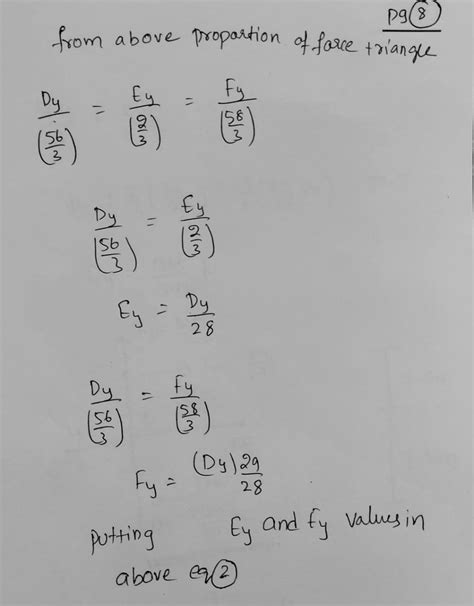 pg 8
from above proportion of force triangle
Dy/(56/3) = Ey/(2/3) = Fy/(58/3)
Dy/(56/3) = Ey/(2/3)
Ey = Dy/28
Dy/(56/3) = Fy/(58/3)
Fy = (Dy) 29/28
putting Ey and fy values in
above eq ②